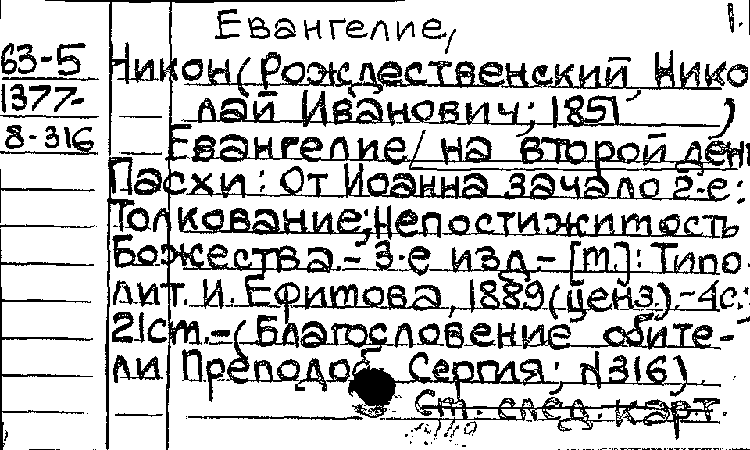 Евангелие, 1.
63-5 Никон (Рождественский, Нико
1377- лай Иванович; 1851 )
8-316 Евангелие/ на второй ден
Пасхи: От Иоанна зачало 2-е:
Толкование; Непостижимость
Божества.- 3-е изд.- [М.]: Типо-
лит. И. Ефимова, 1889 (ценз.).-4с.;
21см.-(Благословение обите-
ли Преподоб. Сергия; N316).
См. след. карт.